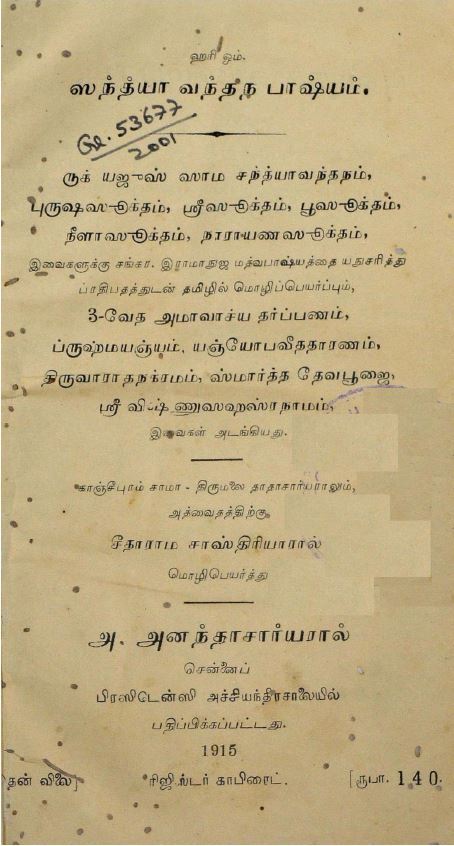 ஹரி ஓம்.
ஸந்த்யா வந்தந பாஷ்யம்.
53677
2001
ருக் யஜுஸ் ஸாம சந்த்யாவந்தநம்,
புருஷஸூக்தம், ஸ்ரீஸூக்தம், பூஸூக்தம்,
நீளாஸூக்தம், நாராயணஸூக்தம்,
இவைகளுக்கு சங்கர. இராமாநுஜ மத்வபாஷ்யத்தை யநுசரித்து
ப்ரதிபதத்துடன் தமிழில் மொழிப்பெயர்ப்பும்,
3-வேத அமாவாச்ய தர்ப்பணம்,
ப்ருஹ்மயஞ்யம், யஞ்யோபவீததாரணம்,
திருவாராதநக்ரமம், ஸ்மார்த்த தேவபூஜை,
ஸ்ரீ விஷ்ணுஸஹஸ்ரநாமம்,
இவைகள் அடங்கியது.
காஞ்சீபுரம் சாமா - திருமலை தாதாசார்யராலும்,
அத்வைதத்திற்கு
சீதாராம சாஸ்திரியாரால்
மொழிபெயர்த்து
அ. அனந்தாசார்யரால்
சென்னைப்
பிரஸிடென்ஸி அச்சியந்திரசாலையில்
பதிப்பிக்கப்பட்டது.
1915
தன் விலை] ரிஜிஸ்டர் காபிரைட். [ரூபா. 1 4 0.